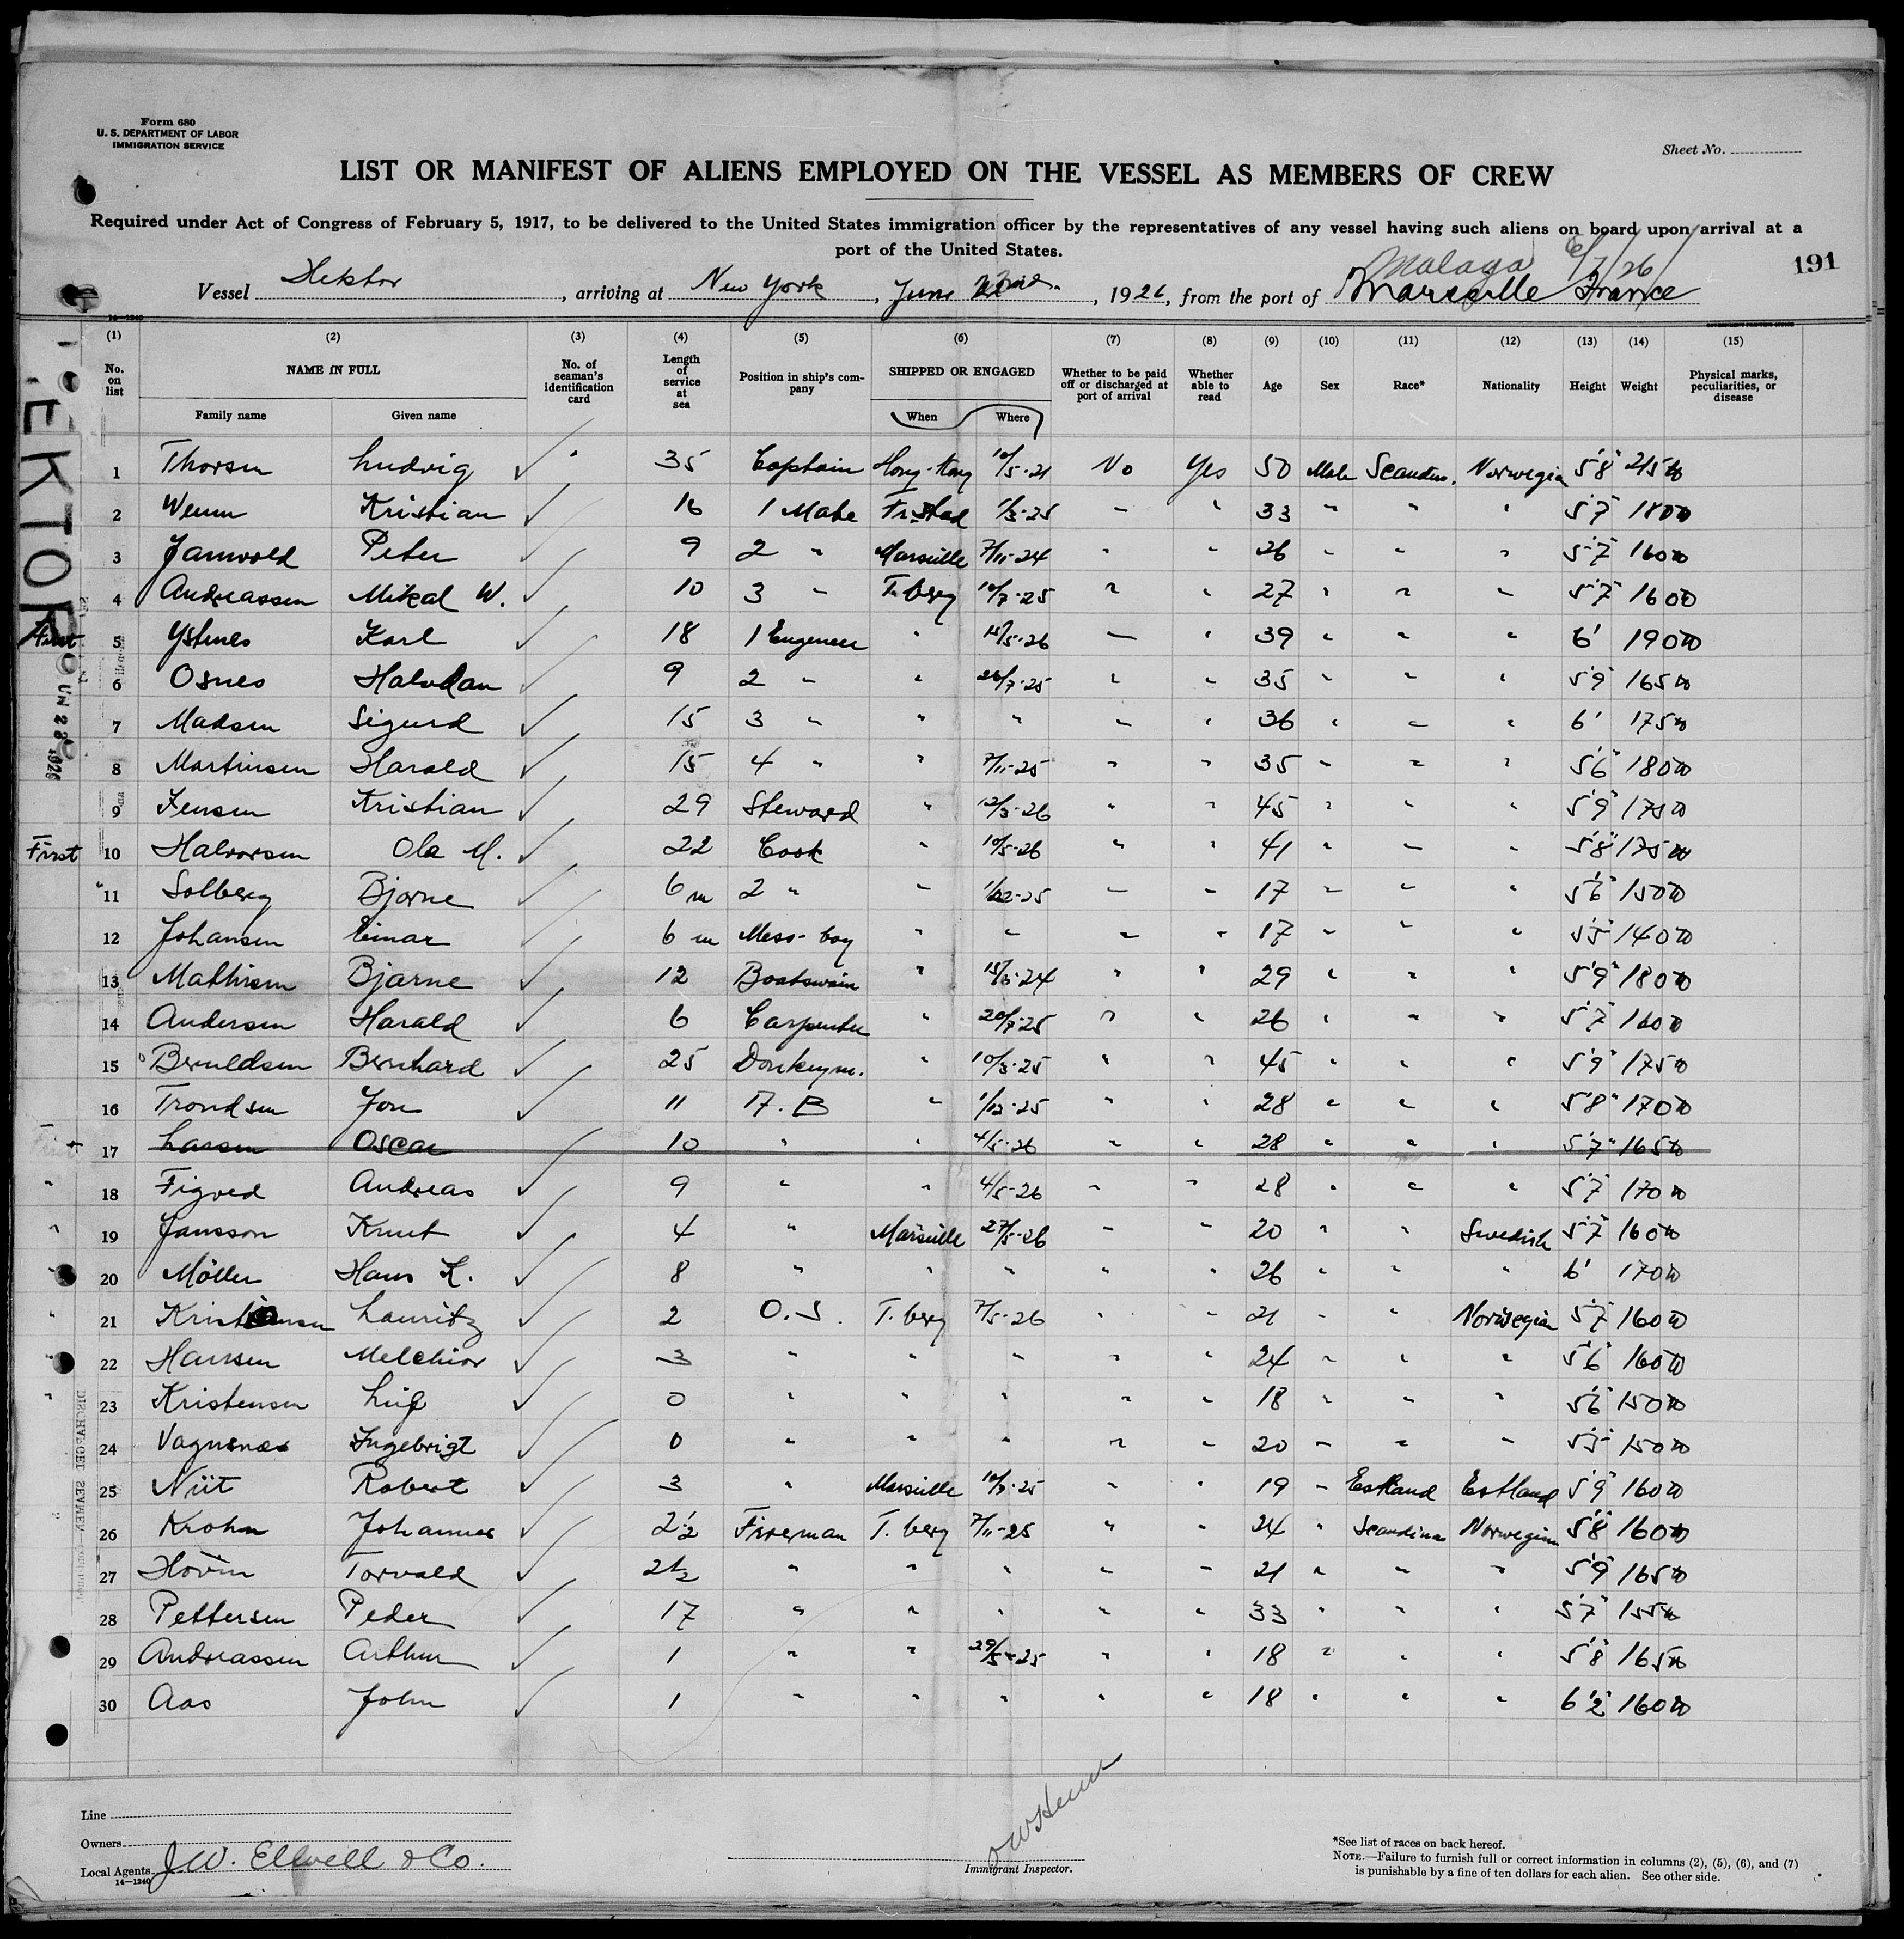 Form 680
U. S. DEPARTMENT OF LABOR
IMMIGRATION SERVICE
Sheet No.
LIST OR MANIFEST OF ALIENS EMPLOYED ON THE VESSEL AS MEMBERS OF CREW
Required under Act of Congress of February 5, 1917, to be delivered to the United States immigration officer by the representatives of any vessel having such aliens on board upon arrival at a
port of the United States.
Malaga 6/7/26
191
Vessel Hektor, arriving at New York, June 23rd., 1926, from the port of Marseille France
14—1240
(1) (2) (3) (4) (5) (6) (7) (8) (9) (10) (11) (12) (13) (14) (15)
No. on list NAME IN FULL No. of seaman's identification card Length of service at sea Position in ship's company SHIPPED OR ENGAGED Whether to be paid off or discharged at port of arrival Whether able to read Age Sex Race* Nationality Height Weight Physical marks, peculiarities, or disease
Family name Given name When Where
HEKTOR
1 Thorsen Ludvig 35 Captain Hong-Kong 10/5-21 No Yes 50 Male Scandin. Norwegian 5'8" 215
2 Wenn Kristian 16 1 Mate Fr.stad 1/3-25 " " 33 " " " 5'7" 180
3 Jamvold Peter 9 2 " Marseille 7/11-24 " " 26 " " " 5'7" 160
4 Andreassen Mikal W. 10 3 " T.berg 10/7-25 " " 27 " " " 5'7" 160
First 5 Ystnes Karl 18 1 Engeneer " 15/5-26 " " 39 " " " 6' 190
6 Osnes Halvdan 9 2 " " 26/7-25 " " 35 " " " 5'9" 165
7 Madsen Sigurd 15 3 " " " " " 36 " " " 6' 175
8 Martinsen Harald 15 4 " " 7/11-25 " " 35 " " " 5'6" 180
9 Jensen Kristian 29 Steward " 12/3-26 " " 45 " " " 5'9" 175
First 10 Halvorsen Ola M. 22 Cook " 10/5-26 " " 41 " " " 5'8" 175
11 Solberg Bjarne 6 m 2 " " 1/12-25 " " 17 " " " 5'6" 150
12 Johansen Einar 6 m Mess-boy " " " " 17 " " " 5'5" 140
13 Mathisen Bjarne 12 Boatswain " " " 29 " " " 5'9" 180
14 Andersen Harald 6 Carpenter " 20/7-25 " " 26 " " " 5'7" 160
15 Bernldsen Bernhard 25 Donkeym. " 10/3-25 " " 45 " " " 5'9" 175
16 Trondsen Jon 11 A.B " 1/12-25 " " 28 " " " 5'8" 170
17 Larsen Oscar 10 " " 4/5-26 " " 28 " " " 5'7" 165
" 18 Figved Andreas 9 " " 4/5-26 " " 28 " " " 5'7" 170
" 19 Jansson Knut 4 " Marseille 27/5-26 " " 20 " " Swedish 5'7" 160
20 Möller Hans K. 8 " " " " " 26 " " " 6' 170
" 21 Kristiansen Lauritz 2 O.S. T.berg 7/5-26 " " 21 " " Norwegian 5'7" 160
22 Hansen Melchior 3 " " " " " 24 " " " 5'6" 160
" 23 Kristensen Leif 0 " " " " " 18 " " " 5'6" 150
24 Vagnsnes Ingebrigt 0 " " " " " 20 " " " 5'5" 150
25 Niit Robert 3 " Marseille " " 19 " Estland Estland 5'9" 160
26 Krohn Johannes 2½ Fireman T.berg 7/11-25 " " 24 " Scandina Norwegian 5'8" 160
27 Hovin Torvald 2½ " " " " " 21 " " " 5'9" 165
28 Pettersen Peder 17 " " " " " 33 " " " 5'7" 155
29 Andreassen Arthur 1 " " 29/5-25 " " 18 " " " 5'8" 165
30 Aas John 1 " " " " " 18 " " " 6'2" 160
Line
Owners
Local Agents J.W. Elwell & Co.
14—1240
Immigrant Inspector.
*See list of races on back hereof.
NOTE.—Failure to furnish full or correct information in columns (2), (5), (6), and (7)
is punishable by a fine of ten dollars for each alien. See other side.